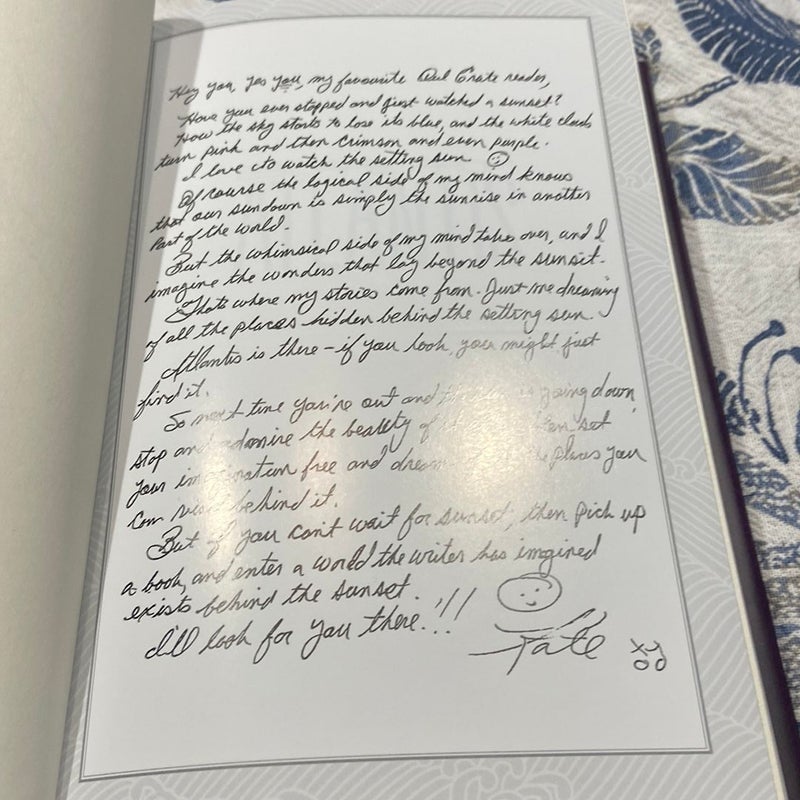 Hey you, yes you, my favourite Owl Crate reader,
Have you ever stopped and just watched a sunset?
How the sky starts to lose its blue, and the white clouds
turn pink and then crimson and even purple.
I love to watch the setting sun
Of course the logical side of my mind knows
that our sundown is simply the sunrise in another
part of the world.
But the whimsical side of my mind takes over, and I
imagine the wonders that lay beyond the sunset.
Thats where my stories come from. Just me dreaming
of all the places hidden behind the setting sun.
Atlantis is there - if you look, you might just
find it.
So next time you're out and going down,
stop and admire the beauty of set
your imagination free and dream the places you
can visit behind it.
But if you can't wait for sunset, then pick up
a book, and enter a world the writer has imgined
exists behind the sunset.
I'll look for you there.!!!
Kate xx
oo